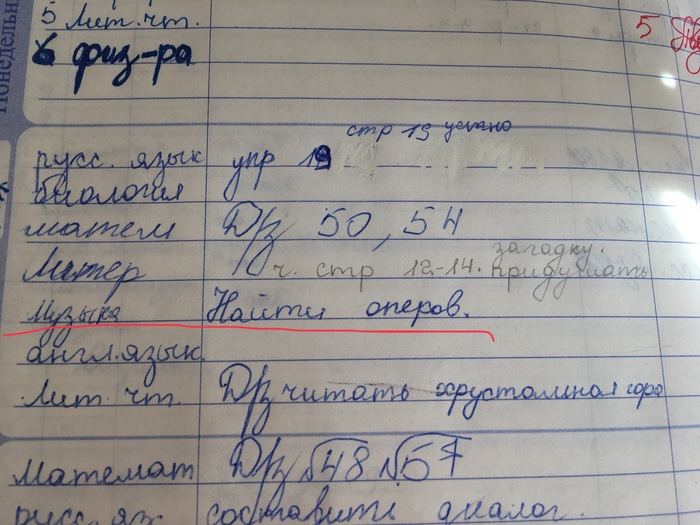 Понедельн
5 Лит. чт.
5
6 физ-ра
стр 19 устно
русс. язык упр 19
биология
матем Д/з 50, 54
загадку.
Литер ч. стр 12-14. придумать
Музыка Найти оперов.
англ. язык.
Лит. чт. Д/з читать хрустолиная гора
Математ Д/з √48 √57
русс. яз составить диалог.